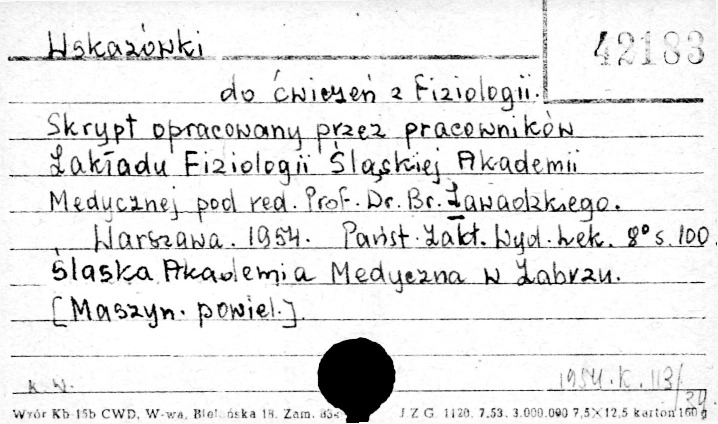 Wskazówki
42183
do ćwiczeń z Fiziologii.
Skrypt opracowany przez pracowników
Zakładu Fizjologii Śląskiej Akademii
Medycznej pod red. Prof. Dr. Br. Zawadzkiego.
Warszawa. 1954. Państ. Zakł. Wyd. Lek. 8° s. 100.
Śląska Akademia Medyczna w Zabrzu.
[Maszyn. powiel.]
K. W.
1954. K. 113/
Wzór Kb-15b CWD, W-wa, 18. Zam.
J Z G. 1120. 7.53. 3.000.000 7,5×12,5 karton 160 g